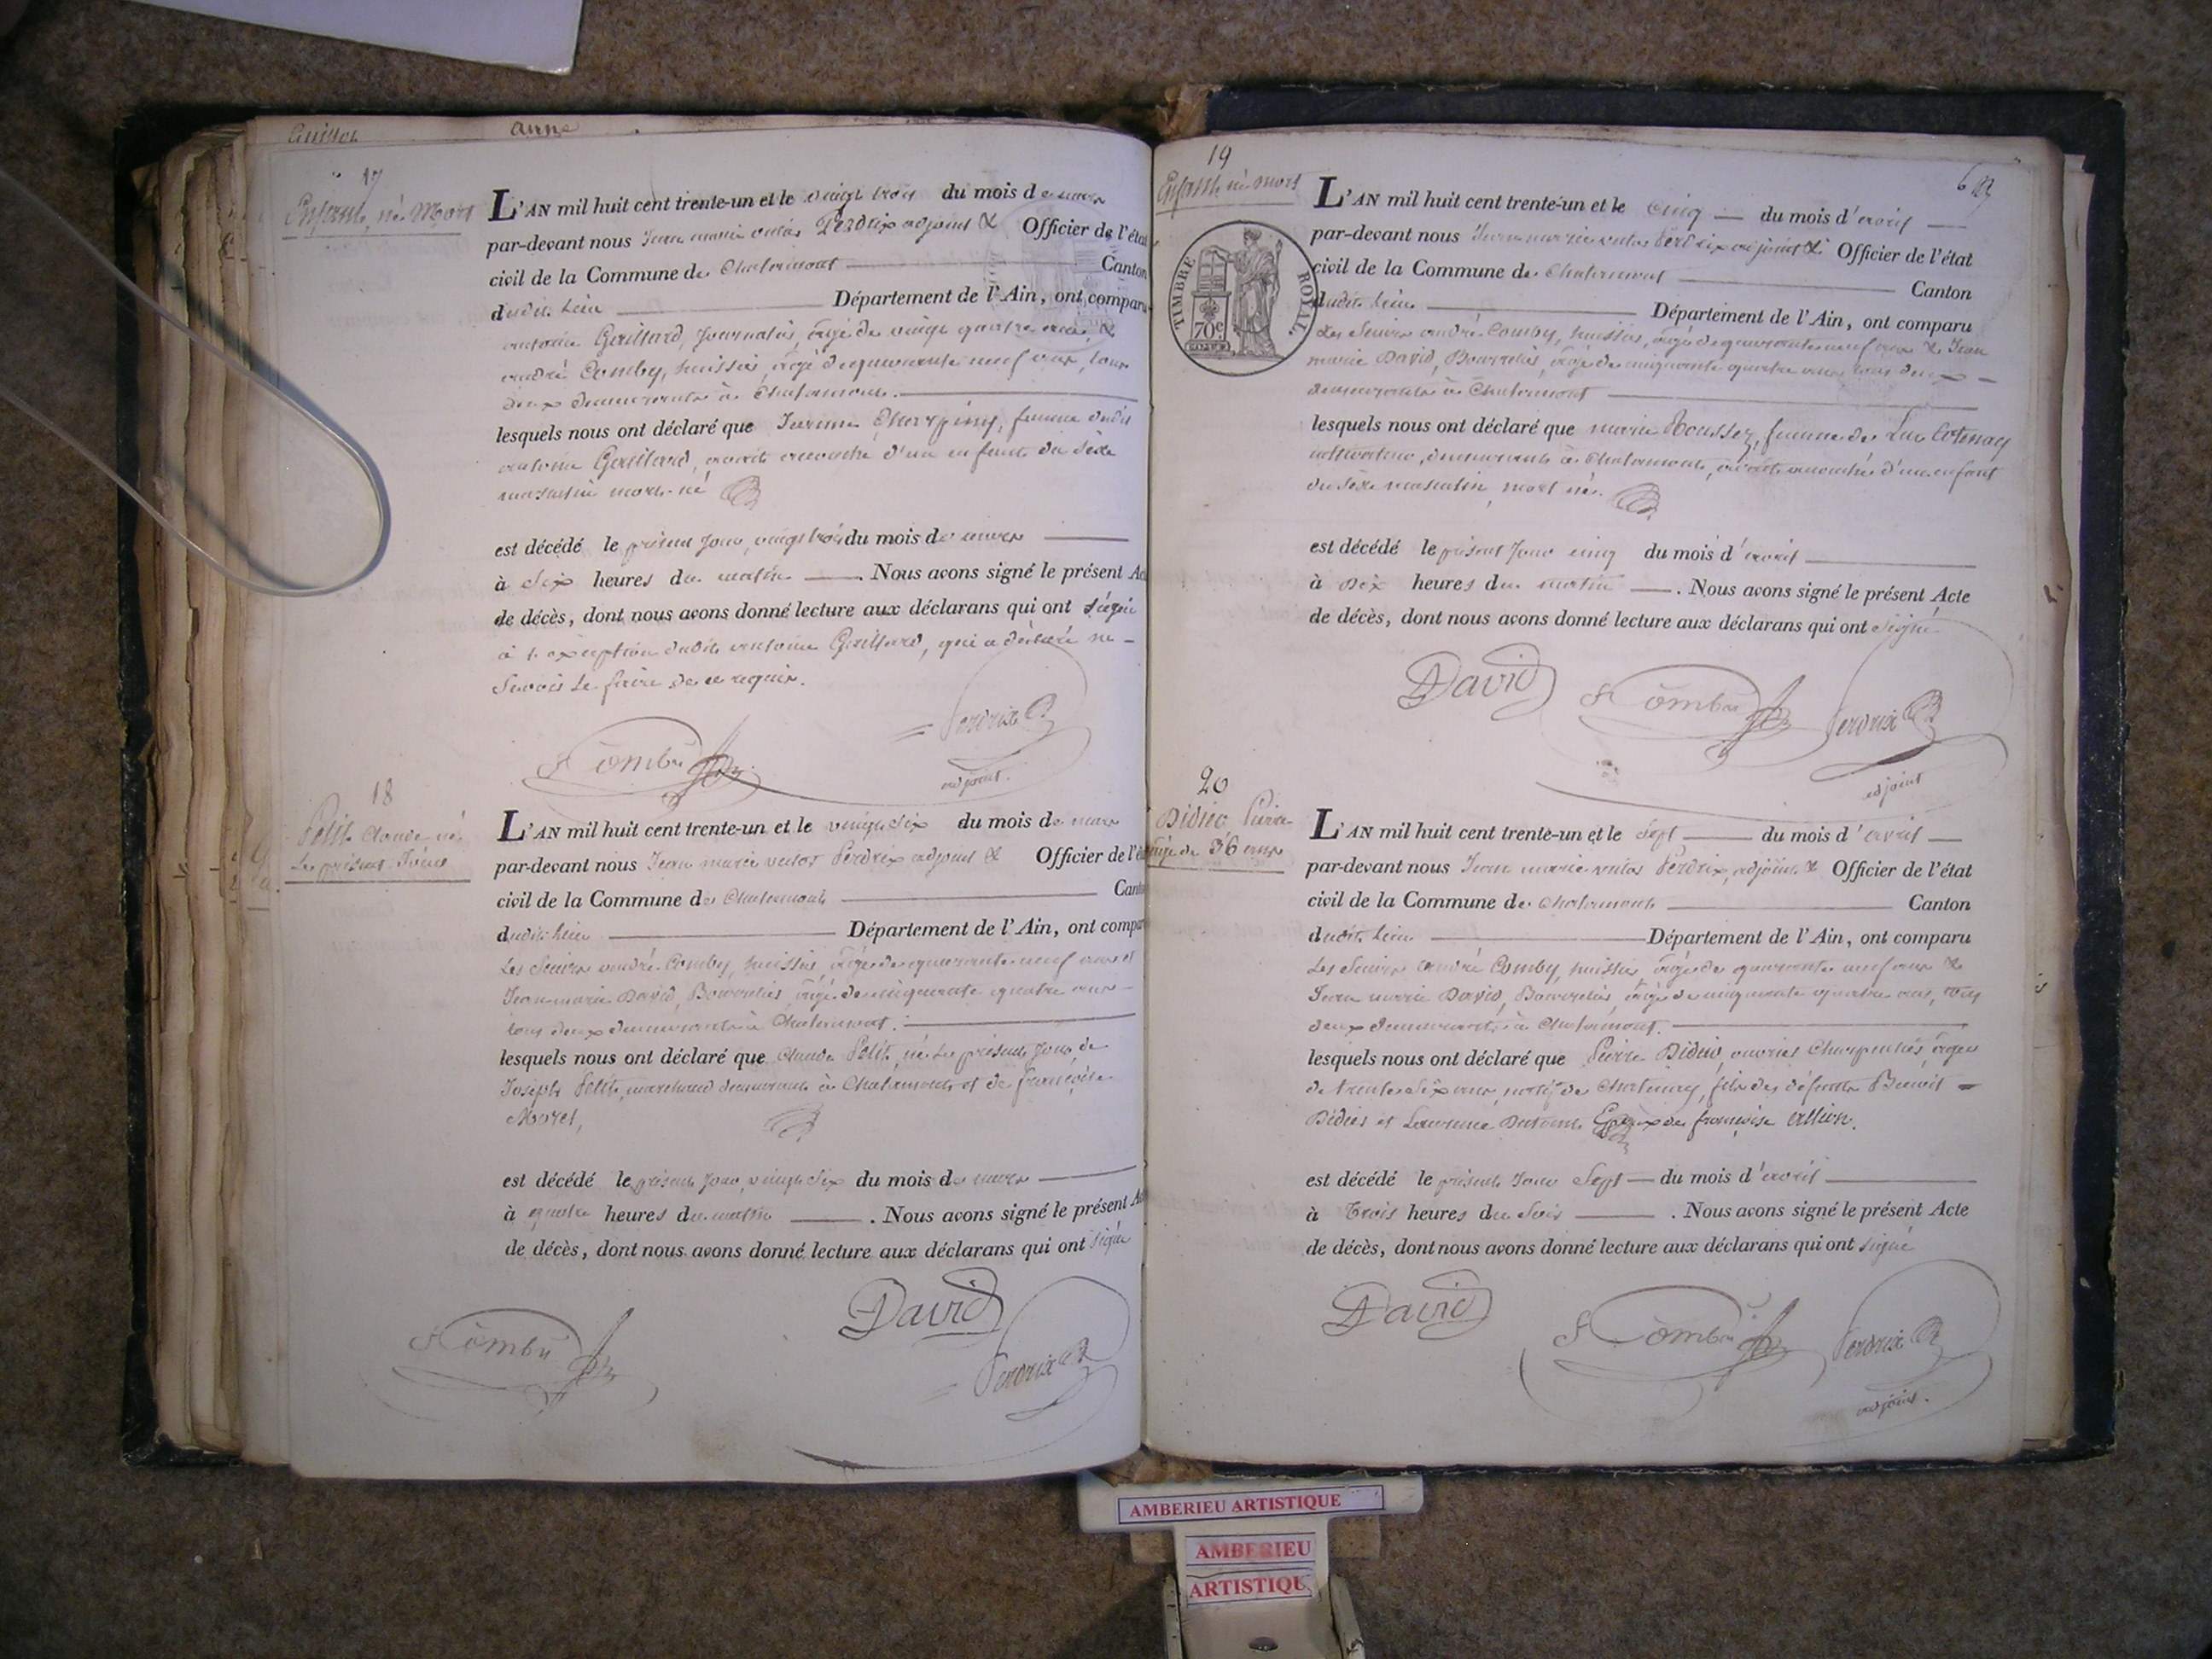 anne
17
Enfant, né Mort
L'AN mil huit cent trente-un et le vingt trois du mois de mars
par-devant nous Jean marie Perdrix adjoint & Officier de l'état
civil de la Commune de Chalamont Canton
dudit lieu Département de l'Ain, ont comparu
antoine Gaillard, Journalier, âgé de vingt quatre ans, &
andré Comby, huissier, âgé de quarante neuf ans, tous
deux demeurants à Chalamont.
lesquels nous ont déclaré que femme dudit
antoine Gaillard, avait accouché d'un enfant du sexe
masculin mort-né
est décédé le présent jour, vingt trois du mois de mars
à Six heures du matin . Nous avons signé le présent Ac
de décès, dont nous avons donné lecture aux déclarans qui ont signé
à l'exception dudit antoine Gaillard, qui a déclaré ne
Savoir le faire de ce requis.
Perdrix
adjoint.
18
Petit Claude né
Le présent Jour
L'AN mil huit cent trente-un et le vingt Six du mois de mars
par-devant nous Jean marie Perdrix adjoint & Officier de l'ét
civil de la Commune de Chalamont Cant
dudit lieu Département de l'Ain, ont compar
Les Sieurs andré Comby, huissier, âgé de quarante neuf ans et
Jean marie David, Bourrelier, âgé de cinquante quatre ans
tous deux demeurants à Chalamont.
lesquels nous ont déclaré que Claude Petit, né Le présent Jour, de
Joseph Petit, marchand demeurant à Chalamont, et de françoise
Morel,
est décédé le présent Jour, vingt Six du mois de mars
à quatre heures du matin . Nous avons signé le présent Ac
de décès, dont nous avons donné lecture aux déclarans qui ont signé
David
Perdrix
19
Enfant né mort
TIMBRE ROYAL
70c
L'AN mil huit cent trente-un et le cinq du mois d'avril
par-devant nous Jean marie Perdrix adjoint & Officier de l'état
civil de la Commune de Chalamont Canton
dudit lieu Département de l'Ain, ont comparu
Les Sieurs andré Comby, huissier, âgé de quarante neuf ans & Jean
marie David, Bourrelier, âgé de cinquante quatre ans tous deux
demeurants à Chalamont
lesquels nous ont déclaré que marie femme de Luc
cultivateur, demeurants à Chalamont, avait accouché d'un enfant
du sexe masculin, mort né.
est décédé le présent Jour cinq du mois d'avril
à Dix heures du matin . Nous avons signé le présent Acte
de décès, dont nous avons donné lecture aux déclarans qui ont signé
David
Perdrix
adjoint
20
Didier Pierre
âgé de 36 ans
L'AN mil huit cent trente-un et le Sept du mois d'avril
par-devant nous Jean marie Perdrix, adjoint & Officier de l'état
civil de la Commune de Chalamont Canton
dudit lieu Département de l'Ain, ont comparu
Les Sieurs andré Comby, huissier, âgé de quarante neuf ans &
Jean marie David, Bourrelier, âgé de cinquante quatre ans, tous
deux demeurants à Chalamont.
lesquels nous ont déclaré que Pierre Didier, ouvrier Charpentier, âgé
de trente Six ans, natif de Chatenay, fils des défunts Benoit
Didier et Laurence Epoux de françoise
est décédé le présent Jour Sept du mois d'avril
à Trois heures du Soir . Nous avons signé le présent Acte
de décès, dont nous avons donné lecture aux déclarans qui ont signé
David
Perdrix
adjoint.
AMBERIEU ARTISTIQUE
AMBERIEU
ARTISTIQU